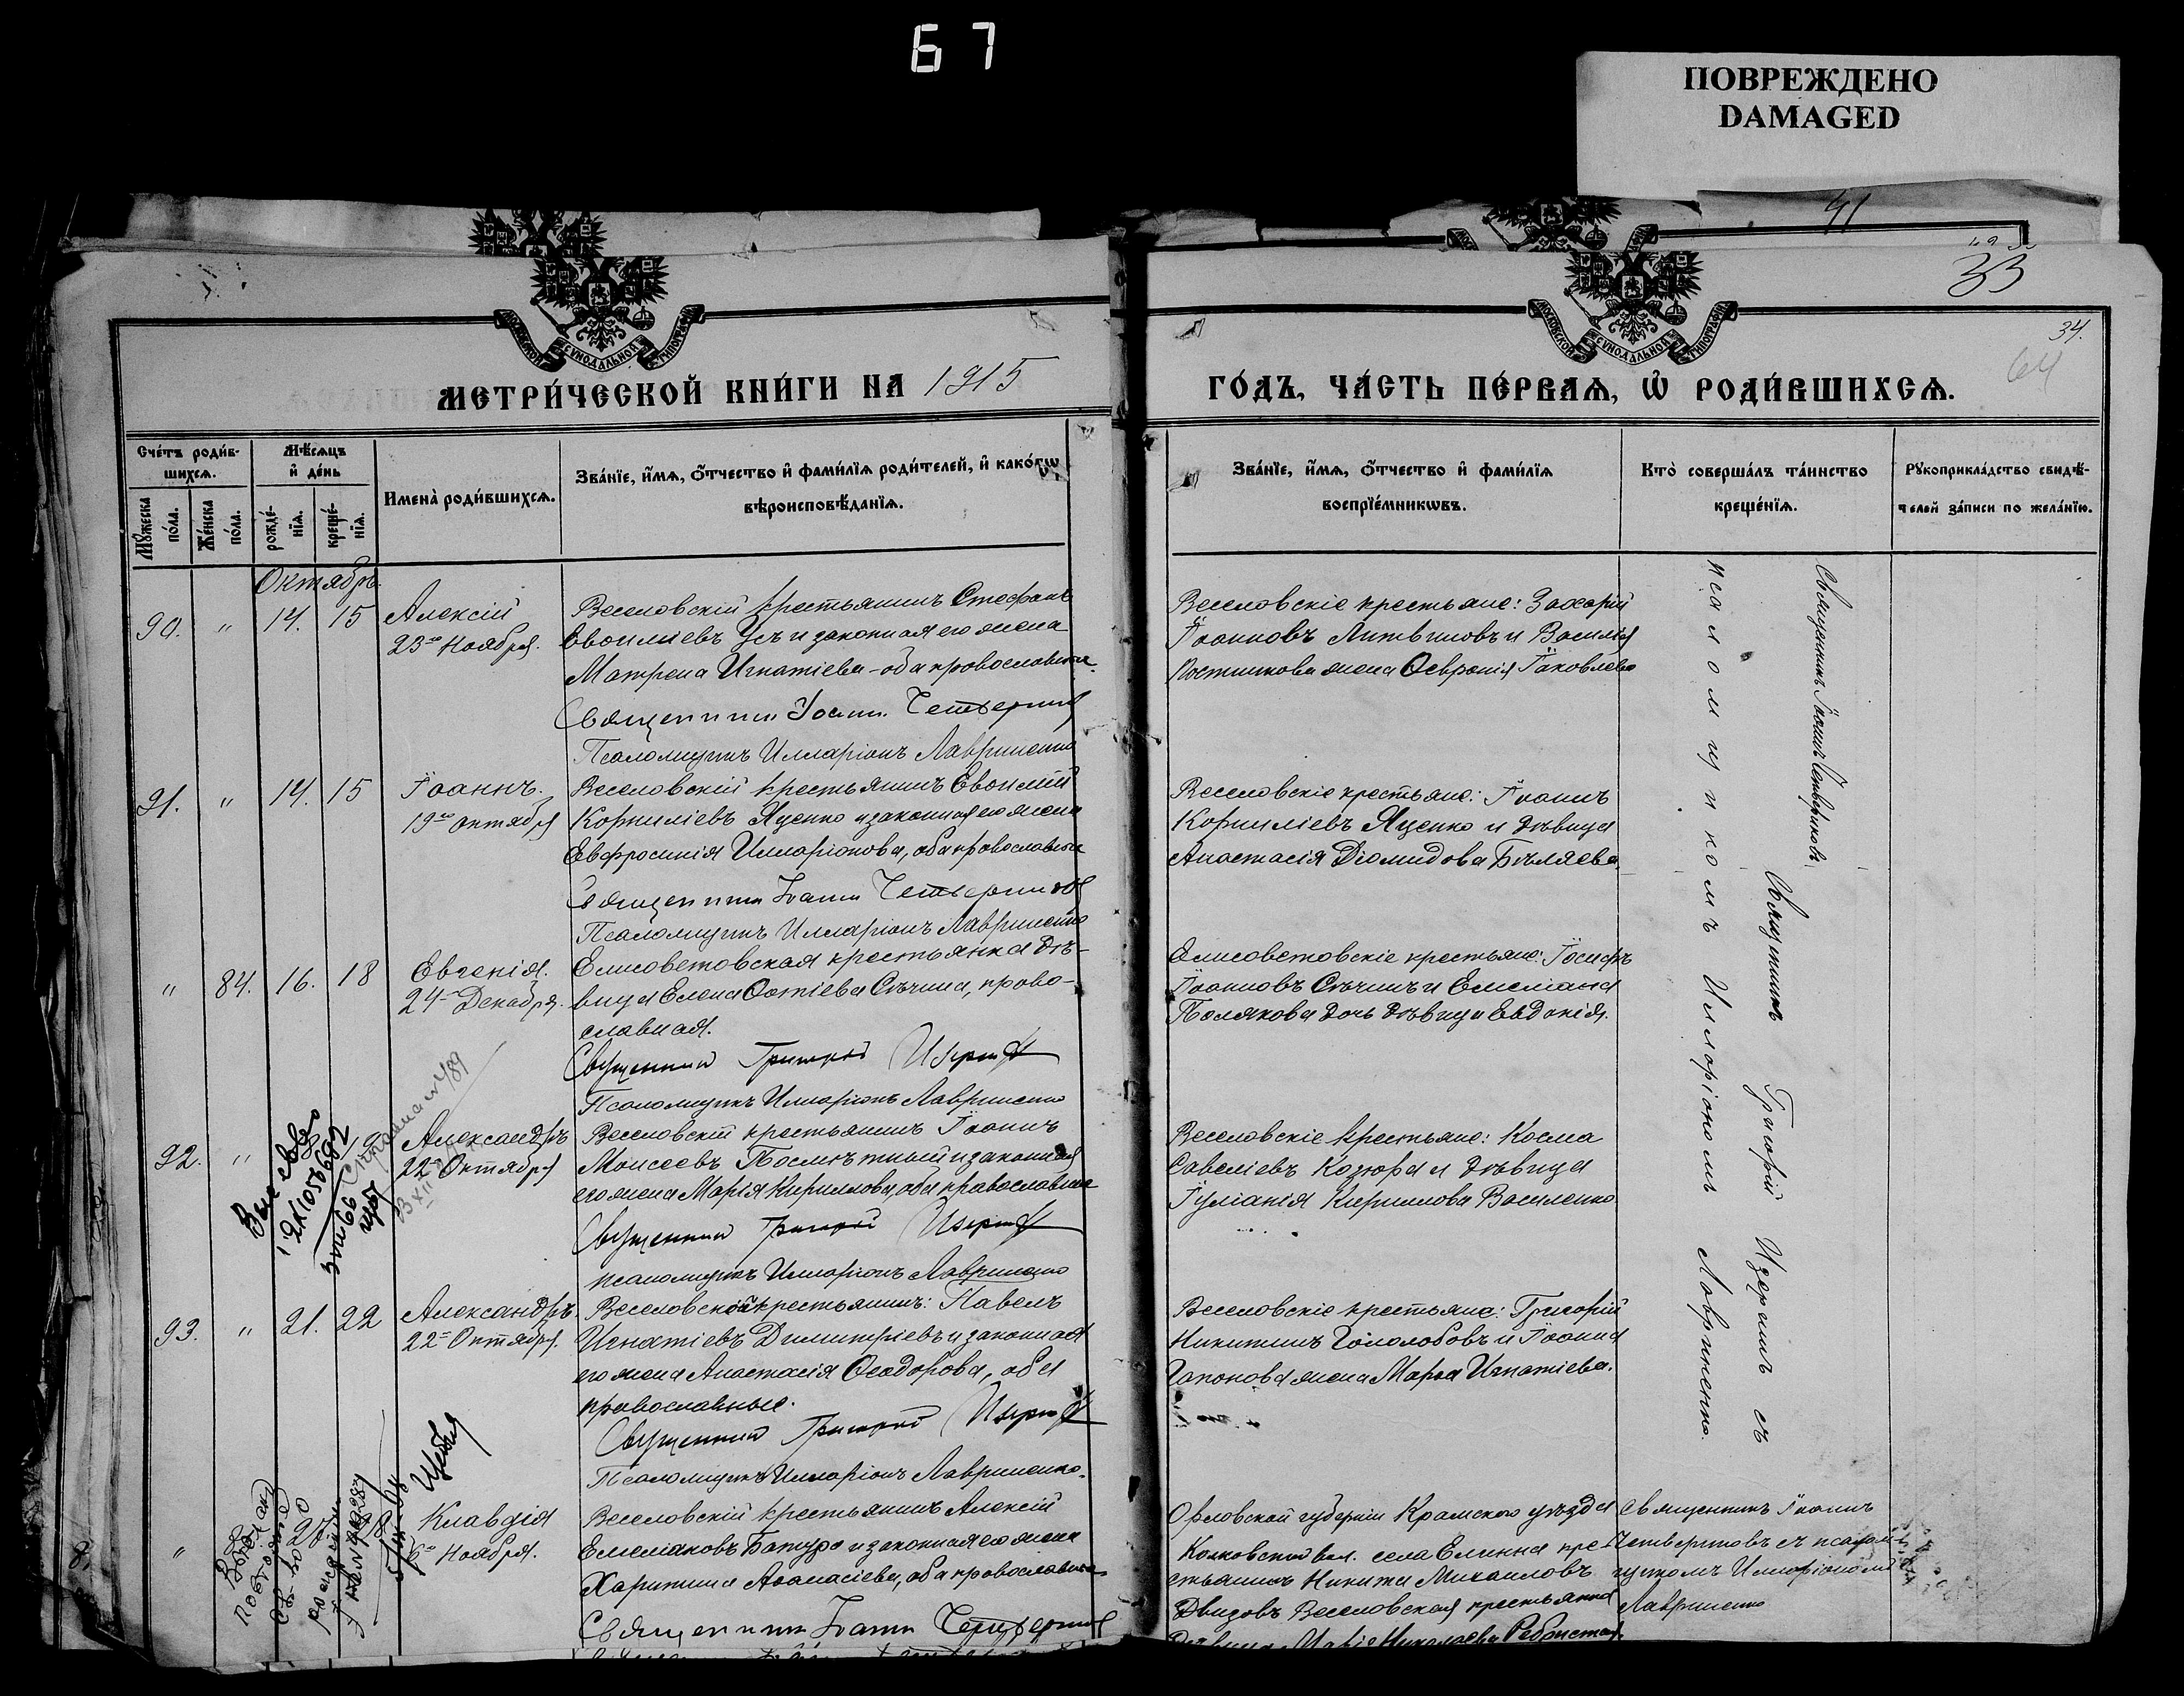 67
ПОВРЕЖДЕНО
DAMAGED
41
33
34.
64
МОСКОВСКОЙ СѴНОДАЛЬНОЙ ТИПОГРАФІИ
МОСКОВСКОЙ СѴНОДАЛЬНОЙ ТИПОГРАФІИ
МЕТРИ́ЧЕСКОЙ КНИ́ГИ НА 1915
ГО́ДЪ, ЧА́СТЬ ПЕ́РВАѦ, Ѡ҆ РОДИ́ВШИХСѦ.
Сче́тъ роди́в-
шихсѧ.
Мꙋжеска по́ла.
Же́нска по́ла.
Мѣ́сѧцъ
и҆ де́нь
рожде́-
нїѧ.
креще́-
нїѧ.
Имена̀ роди́вшихсѧ.
Зва́нїе, и҆́мѧ, ѻ҆́тчество и҆ фами́лїѧ роди́телей, и҆ како́гѡ
вѣроисповѣ́данїѧ.
Зва́нїе, и҆́мѧ, ѻ҆́тчество и҆ фами́лїѧ
воспрїе́мникѡвъ.
Кто̀ соверша́лъ та́инство
креще́нїѧ.
Рꙋкоприкла́дство свидѣ́-
телей за́писи по жела́нїю.
Октябрь.
90. " 14. 15 Алексій
23го Ноября.
Веселовскій крестьянинъ Стефанъ
Евѳиміевъ Усъ и законная его жена
Матрена Игнатіева - оба православные.
Священникъ Іоаннъ Четвериковъ
Псаломщикъ Илларіонъ Лавриненко
Веселовскіе крестьяне: Захарій
Іоанновъ Литвиновъ и Василія
Постникова жена Ѳевронія Іаковлева
91. " 14. 15 Іоаннъ.
19го октября
Веселовскій крестьянинъ Евѳимій
Корниліевъ Яценко и законная его жена
Евфросинія Илларіонова, оба православные
Священникъ Іоаннъ Четвериковъ
Псаломщикъ Илларіонъ Лавриненко
Веселовскіе крестьяне: Іоаннъ
Корниліевъ Яценко и дѣвица
Анастасія Діомидова Бѣляева.
" 84. 16. 18 Евгенія.
24го Декабря.
Елисоветовская крестьянка дѣ-
вица Елена Фотіева Сѣчина, право-
славная.
Священникъ Григорій Изергинъ
Псаломщикъ Илларіонъ Лавриненко
Елисоветовскіе крестьяне: Іосифъ
Іоанновъ Сѣчинъ и Емеліана
Полякова дочь дѣвица Евдокія.
92. " 19 Александръ
22го Октября
Веселовскій крестьянинъ Іоаннъ
Моисеевъ Посмѣтный и законная
его жена Марія Кириллова, оба православные
Священникъ Григорій Изергинъ
псаломщикъ Илларіонъ Лавриненко
Веселовскіе крестьяне: Косма
Савеліевъ Козюра и дѣвица
Іуліанія Кириллова Василенко
93. " 21. 22 Александръ.
22го Октября.
Веселовскій крестьянинъ: Павелъ
Игнатіевъ Димитріевъ и законная
его жена Анастасія Ѳеодорова, оба
православные.
Священникъ Григорій Изергинъ
Псаломщикъ Илларіонъ Лавриненко.
Веселовскіе крестьяне: Григорій
Никитинъ Гололобовъ и Іоанна
Гапонова жена Марѳа Игнатіева.
" Клавдія
6го Ноября.
Веселовскій крестьянинъ Алексій
Емеліановъ Батура и законная его жена
Харитина Аѳанасіева, оба православные
Священникъ Іоаннъ Четвериковъ
Орловской губерніи Крамского уѣзда
вол. села Елинка кре-
стьянинъ Никита Михаиловъ
Веселовская крестьянка
дѣвица Марія Николаева
Священникъ Іоаннъ
Четвериковъ съ псалом-
щикомъ Илларіономъ
Лавриненко
Священникъ Іоаннъ Четвериковъ,
Священникъ Григорій Изергинъ съ
псаломщикомъ Илларіономъ Лавриненко.